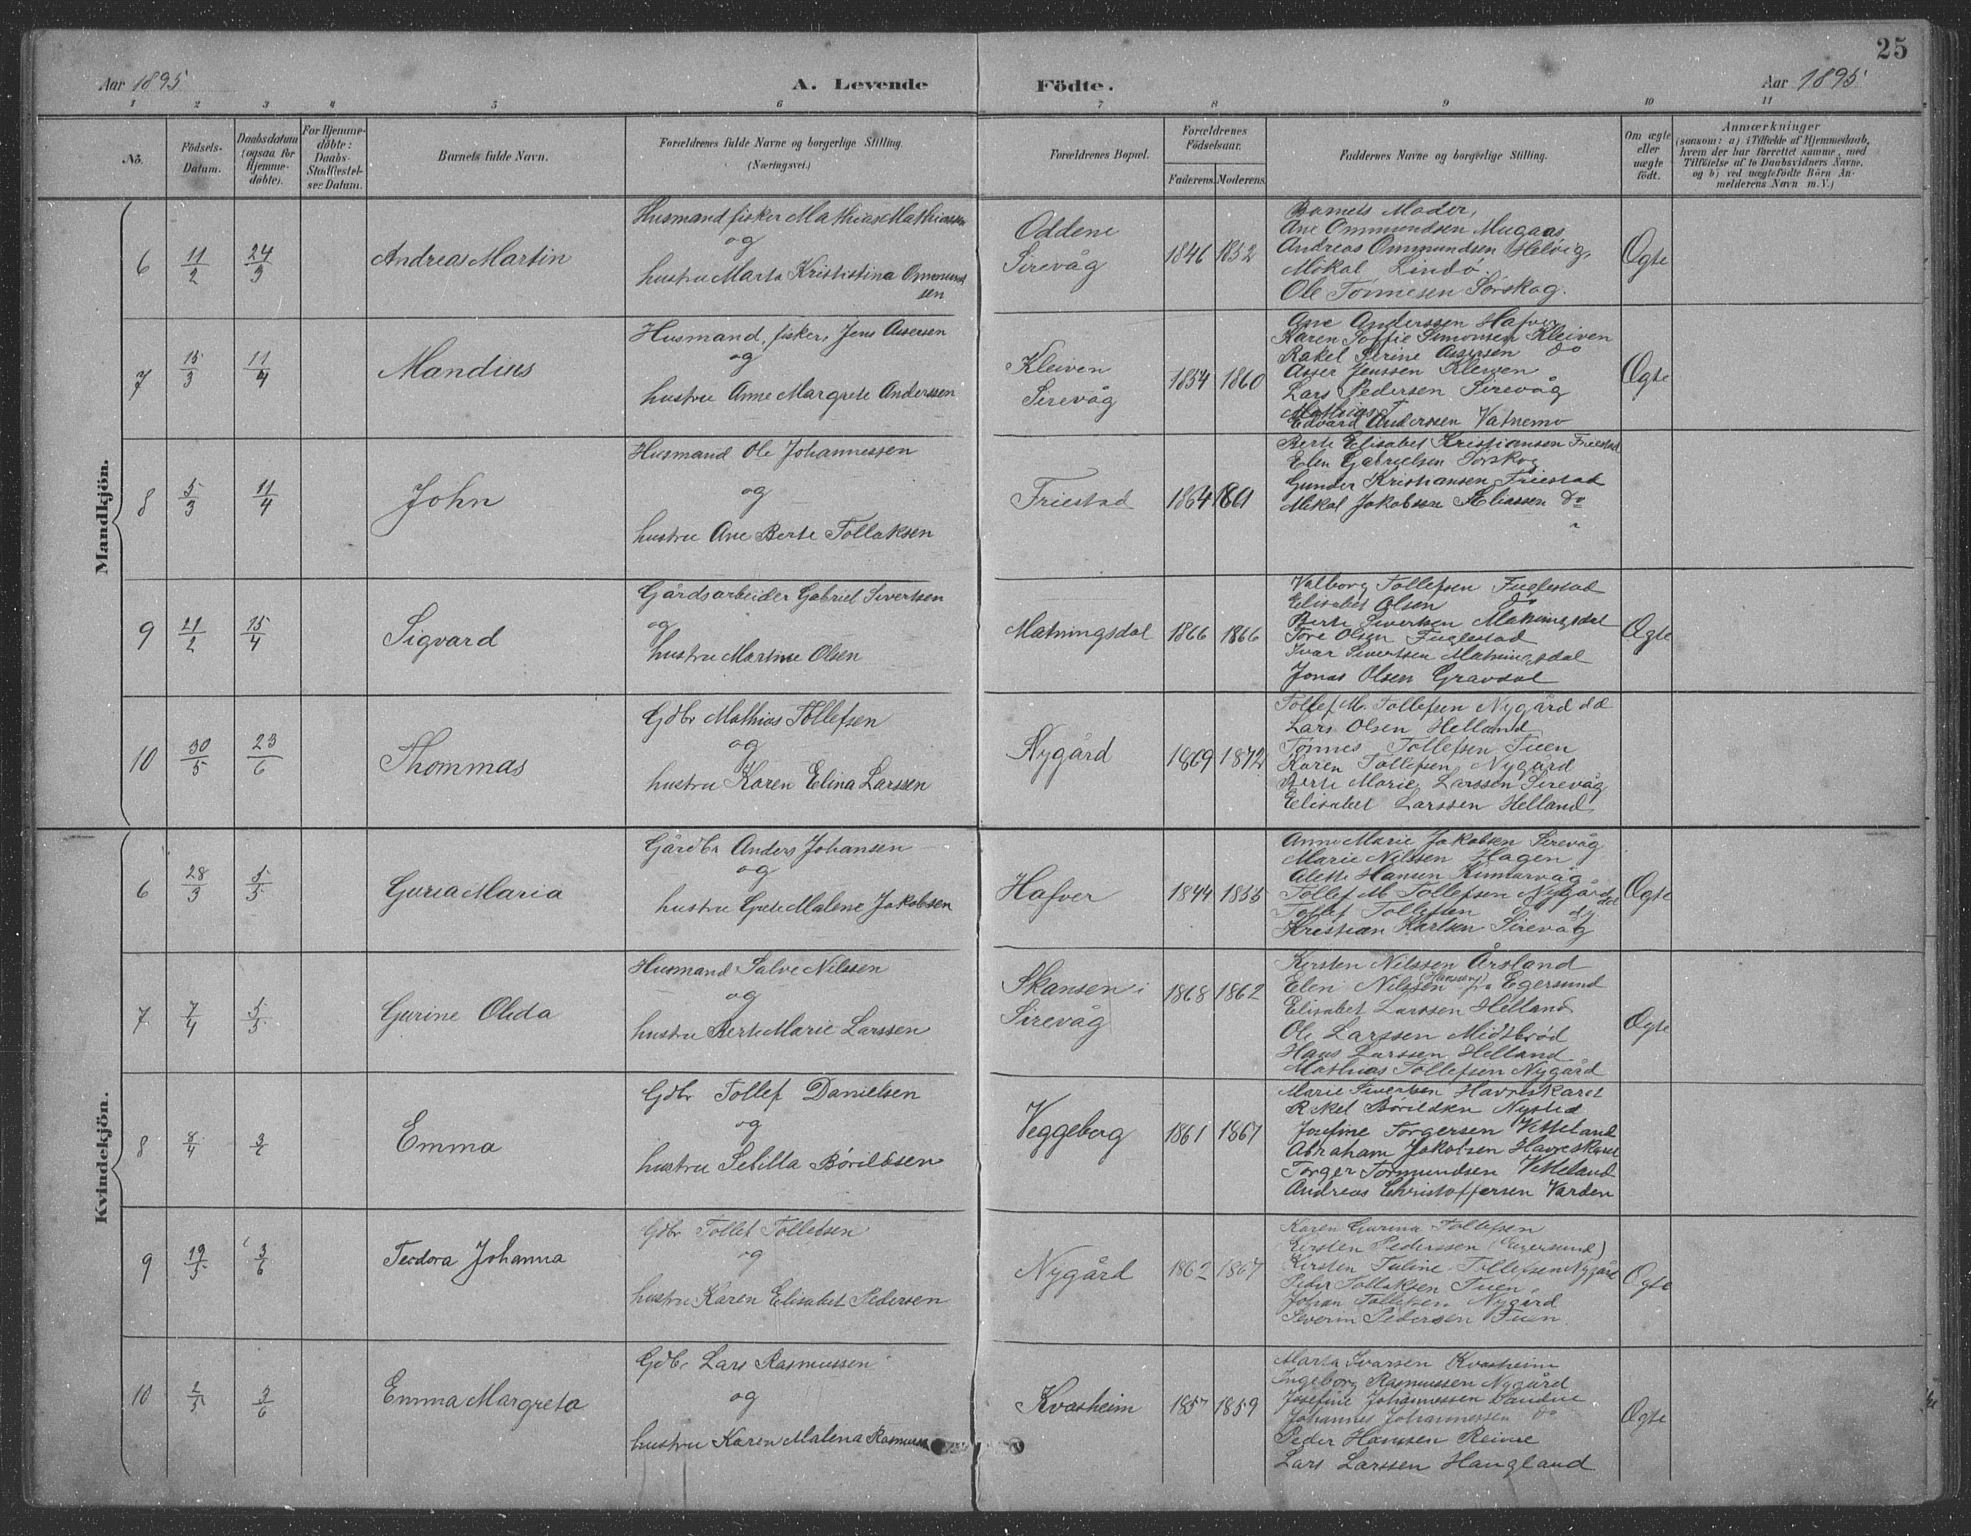 25
Aar 1895
A. Levende Födte.
Aar 1895
1 2 3 4 5 6 7 8 9 10 11
No.
Födsels-Datum.
Daabsdatum (ogsaa for Hjemme-döbte).
For Hjemme-döbte: Daabs-Stadfæstel-ses Datum.
Barnets fulde Navn.
Forældrenes fulde Navne og borgerlige Stilling. (Næringsvei.)
Forældrenes Bopæl.
Forældrenes Födselsaar.
Faderens. Moderens.
Faddernes Navne og borgerlig Stilling.
Om ægte eller uægte födt.
Anmærkninger
(saasom: a) i Tilfælde af Hjemmedaab, hvem der har forrettet samme, med Tilföielse af to Daabsvidners Navne, og b) ved uægtefödte Börn An-melderens Navn m. V.)
Mandkjön.
6 11/2 24/3 Andreas Martin
Husmand fisker Mathias Mathiassen
og
hustru Marta Krististina Ommund
sen
Oddene
Sirevåg
1846 1852
Barnets Moder,
Ane Ommundsen Mugaas
Andreas Ommundsen Helvig,
Mikal Lindö.
Ole Tönnesen Sørskog.
Ægte
7 15/3 11/4 Mandius
Husmand, fisker, Jens Assersen
og
hustru Anne Margrete Anderssen
Kleiven
Sirevåg
1854 1860
Ane Anderssen Hafver
Karen Soffie Simonsen Kleiven
Rakel Serine Assersen do
Asser Jenssen Kleiven
Lars Pedersen Sirevåg
Mathias
Edvard Anderssen Vatnemo
Ægte
8 5/3 11/4 John
Husmand Ole Johannessen
og
hustru Ane Berte Tollaksen
Friestad
1864 1861
Berte Elisabet Kristiansen Friestad
Elen Gabrielsen Sørskog
Gunder Kristiansen Friestad
Mikal Jakobsen Eliassen Do
9 21/2 15/4 Sigvard
Gårdsarbeider Gabriel Sivertsen
og
hustru Martine Olsen
Matningsdal
1866 1866
Valborg Tollefsen Fuglestad
Elisabet Olsen do
Berte Sivertsen Matningsdal
Tore Olsen Fuglestad
Ivar Sivertsen Matningsdal
Jonas Olsen Gravdal
Ægte
10 30/5 23/6 Thommas
Gdbr Mathias Tollefsen
og
hustru Karen Elina Larssen
Nygård
1869 1872
Tollef M. Tollefsen Nygård
Lars Olsen Helland
Tönnes Tollefsen Tuen
Karen Tollefsen Nygård
Berte Marie Larssen Sirevåg
Elisabet Larssen Helland
Kvindekjön.
6 28/3 5/5 Guria Maria
Gårdbr Anders Johansen
og
hustru Grete Malene Jakobsen
Hafver
1844 1855
Anne Marie Jakobsen Sirevåg
Marie Nilssen Hagen
Alette Hansen
Tollef M Tollefsen Nygård
Tollef Tollefsen
Kristian Karlsen Sirevåg
Ægte
7 7/4 5/5 Gurine Olida
Husmand Salve Nilssen
og
hustru Berte Marie Larssen
Skansen i
Sirevåg
1868 1862
Kersten Nilssen Årsland
Elen Nilssen (Hansen) fra Egersund
Elisabet Larssen Helland
Ole Larssen Midtbrød
Hans Larssen Helland
Mathias Tollefsen Nygård
Ægte
8 8/4 3/6 Emma
Gdbr Tollef Danielsen
og
hustru Selilla Børildsen
Veggeberg
1861 1867
Marie Sivertsen Havreskaret
Rakel Børildsen Nysted
Josefine Torgersen Vetteland
Abraham Jakobsen Havreskaret
Torger Tormundsen Vetteland
Andreas Christoffersen Varden
9 19/5 3/6 Teodora Johanna
Gdbr Tollef Tollefsen
og
hustru Karen Elisabet Pedersen
Nygård
1862 1867
Karen Gurina Tollefsen
Kersten Pederssen (Egersund)
Kirsten Tuline Tollefsen Nygård
Peder Tollaksen Tuen
Johan Tollefsen Nygård
Severin Pedersen Tuen
Ægte
10 2/5 3/6 Emma Margreta
Gdbr Lars Rasmussen
og
hustru Karen Malena Rasmuss
Kvasheim
1857 1859
Marta Ivarsen Kvasheim
Ingeborg Rasmussen Nygård
Josefine Johannessen Sandve
Johannes Johannessen do
Peder Hansen Reime
Lars Larssen Haugland
Ægte